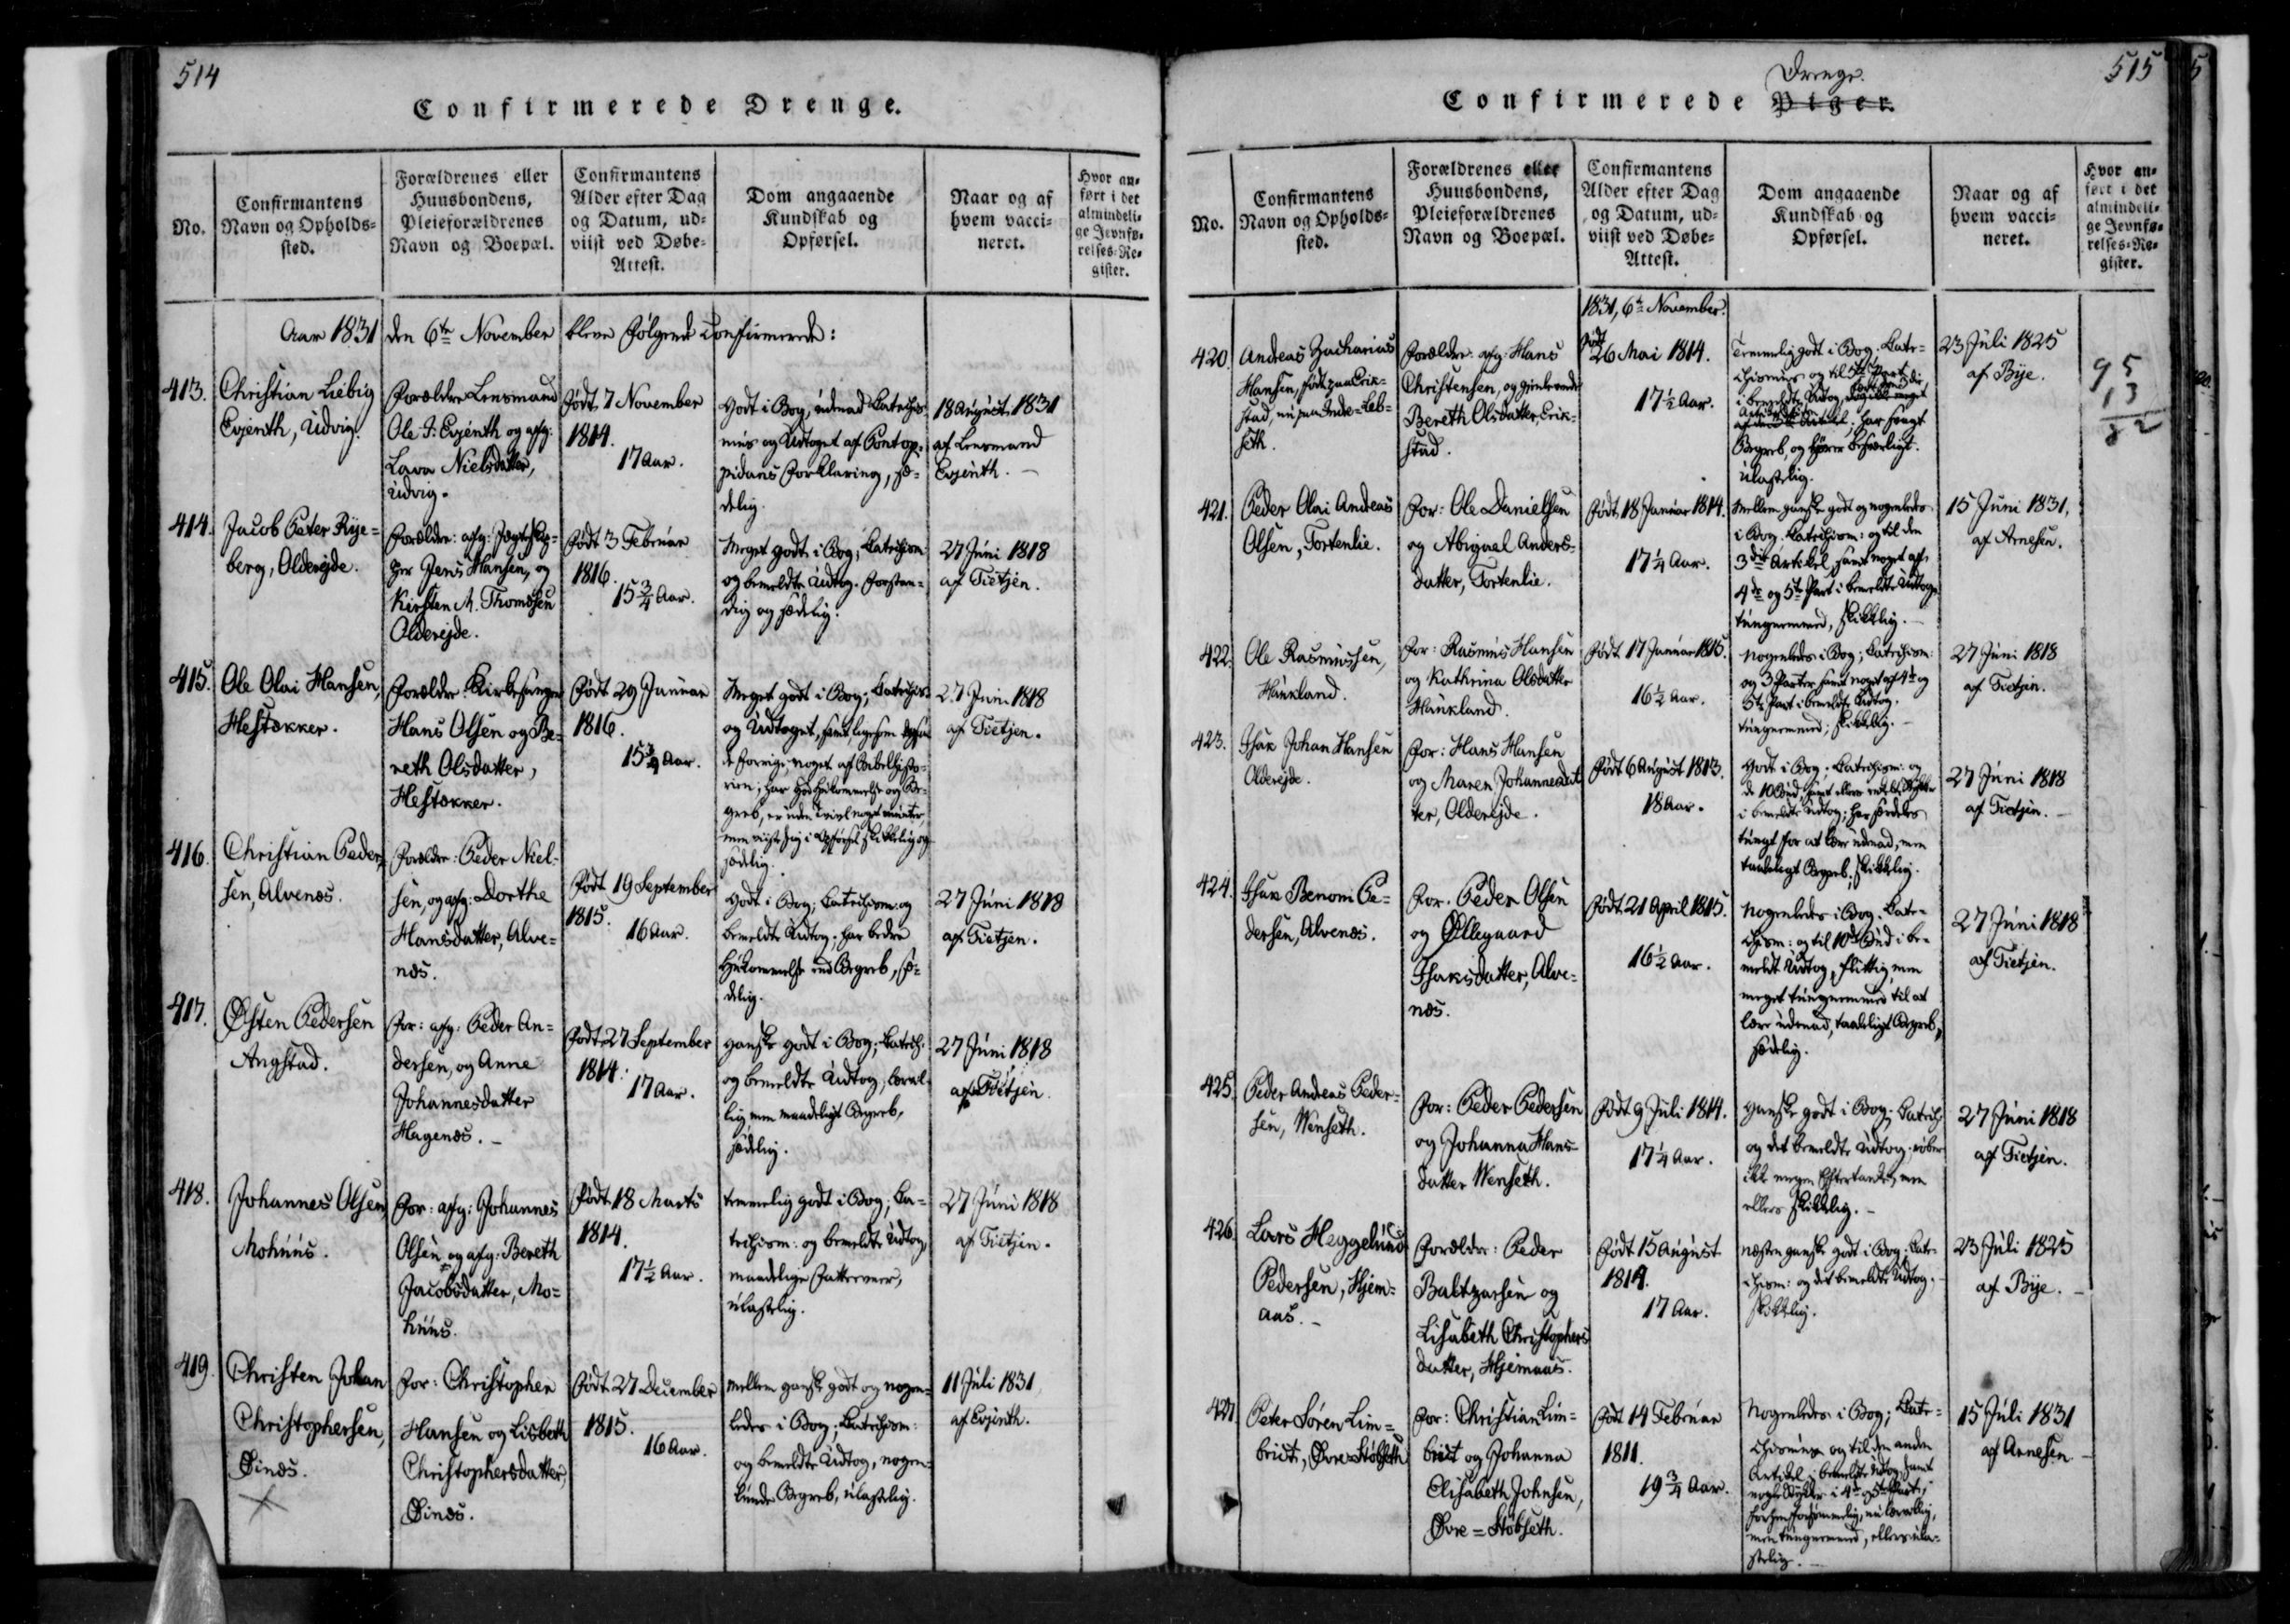 514
Confirmerede Drenge.
No.
Confirmantens
Navn og Opholds=
sted.
Forældrenes eller
Huusbondens,
Pleieforældrenes
Navn og Boepæl.
Confirmantens
Alder efter Dag
og Datum, ud=
viist ved Døbe=
Attest.
Dom angaaende
Kundskab og
Opførsel.
Naar og af
hvem vacci=
neret.
Hvor an=
ført i det
almindeli=
ge Jevnfø=
relses=Re=
gister.
Aar 1831 den 6te November bleve følgende confirmerede:
413.
Christian Liebig
Evjenth, Udvig.
Forældre Lensmand
Ole J: Evjenth og afg:
Lava Nielsdatter,
Udvig.
Født 7 November
1814.
17 Aar.
Godt i Bog, udenad Catechis-
mus og Udtoget af Pontop-
pidans Forklaring, sæ-
delig.
18 August 1831
af Lensmand
Evjenth. –
414.
Jacob Peter Rye=
berg, Oldereide.
Forældre: afg: Jægteskip=
per Jens Hansen, og
Kirsten M. Thomdsen
Oldereide.
Født 3 Februar
1816.
15¾ Aar.
Meget godt i Bog; Catechism:
og bemeldte Udtog. Forstan-
dig og sædelig.
27 Juni 1818
af Tietjen.
415.
Ole Olai Hansen,
Hestøkker.
Forældre Kirkesanger
Hans Olsen og Be-
reth Olsdatter,
Hestøkker.
Født 29 Januar
1816.
15¾ Aar.
Meget godt i Bog; Catechis:
og Udtoget, samt, ligesom
de forrige, noget af Bibelhisto-
rien; har god Hukommelse og Be-
greb, er uden Tvivl noget munter,
men viist sig i Opførsel skikkelig og
sædelig.
27 Juni 1818
af Tietjen.
416.
Christian Peder-
sen, Alvenæs.
Forældre: Peder Niel-
sen, og afg: Dorthe
Hansdatter, Alve=
næs.
Født 19 September
1815.
16 Aar.
Godt i Bog; Catechism: og
bemeldte Udtog; har bedre
Hukommelse end Begreb, sæ-
delig.
27 Juni 1818
af Tietjen.
417.
Østen Pedersen
Angstad.
For: afg: Peder An=
dersen, og Anne
Johannesdatter
Hagenæs. –
Født 27 September
1814.
17 Aar.
Ganske godt i Bog; Catech:
og bemeldte Udtog; lærvil-
lig, men maadeligt Begreb,
sædelig.
27 Juni 1818
af Tietjen.
418.
Johannes Olsen
Mohuus.
For: afg: Johannes
Olsen og afg: Bereth
Jacobsdatter, Mo=
huus.
Født 18 Marts
1814.
17½ Aar.
temmelig godt i Bog; Ca-
techism: og bemeldte Udtog,
maadelige Fatteevner,
ulastelig.
27 Juni 1818
af Tietjen.
419.
Christen Johan
Christophersen,
Øinæs.
For: Christopher
Hansen og Lisbeth
Christophersdatter,
Øinæs.
Født 27 December
1815.
16 Aar.
mellem ganske godt og nogen-
ledes i Bog; Catechism:
og bemeldte Udtog, nogen-
lunde Begreb, ulastelig.
11 Juli 1831
af Evjenth.
515
Drenge.
Confirmerede Piger.
No.
Confirmantens
Navn og Opholds=
sted.
Forældrenes eller
Huusbondens,
Pleieforældrenes
Navn og Boepæl.
Confirmantens
Alder efter Dag
og Datum, ud=
viist ved Døbe=
Attest.
Dom angaaende
Kundskab og
Opførsel.
Naar og af
hvem vacci=
neret.
Hvor an=
ført i det
almindeli=
ge Jevnfø=
relses=Re=
gister.
1831, 6te November.
420.
Andreas Zacharias
Hansen, født paa Erik-
stad, nu paa Indre=Leb-
seth.
Forældre: afg: Hans
Christensen, og gjenlevende
Bereth Olsdatter, Erik-
stad.
Født
26 Mai 1814.
17½ Aar.
Temmelig godt i Bog. Cate-
chismus og til 5te Part
i bemeldte Udtog,
har svagt
Begreb, og hører besværligt.
ulastelig.
23 Juli 1825
af Bye.
95
13
82
421.
Peder Olai Andreas
Olsen, Tortenlie.
For: Ole Danielsen
og Abigael Anders-
datter, Tortenlie.
Født 18 Januar 1814.
17¼ Aar.
Mellem ganske godt og nogenledes
i Bog. Catechism: og til den
3die Artikel, samt noget af
4de og 5te Part i bemeldte Udtog.
tungnemmed, skikkelig. –
15 Juni 1831,
af Arnesen.
422.
Ole Rasmussen,
Haukland.
For: Rasmus Hansen
og Kathrina Olsdatter
Haukland.
Født 17 Januar 1815.
16½ Aar.
Nogenledes i Bog; Catechism:
og 3 Parter samt noget af 4de og
5te Part i bemeldte Udtog.
tungnemmed; skikkelig. –
27 Juni 1818
af Tietjen.
423.
Isak Johan Hansen
Oldereide.
For: Hans Hansen
og Maren Johannesdat
ter, Oldereide.
Født 6 August 1813.
18 Aar.
Godt i Bog; Catechism: og
de 10 Bud, samt
i bemeldte Udtog; har særdeles
tungt for at lære udenad, men
taaleligt Begreb; skikkelig.
27 Juni 1818
af Tietjen. –
424.
Isak Benoni Pe=
dersen, Alvenæs.
For. Peder Olsen
og Øllegaard
Isaksdatter, Alve=
næs.
Født 21 April 1815.
16½ Aar.
Nogenledes i Bog. Cate-
chism: og til 10de Bud i be-
meldte Udtog, flittig, men
meget tungnemmed til at
lære udenad, taaleligt Begreb,
sædelig.
27 Juni 1818
af Tietjen.
425.
Peder Andreas Peder-
sen, Wenseth.
For: Peder Pedersen
og Johanna Hans-
datter Wenseth.
Født 9 Juli 1814.
17¼ Aar.
Ganske godt i Bog; Catech:
og det bemeldte Udtog;
ikke megen Eftertanke, men
ellers skikkelig. –
27 Juni 1818
af Tietjen.
426.
Lars Heggelund
Pedersen, Hjem=
aas. –
Forældre: Peder
Baltzarsen og
Lisabeth Christophers
datter, Hjemaas.
Født 15 August
1814.
17 Aar.
næsten ganske godt i Bog; Cate-
chism: og det bemeldte Udtog. –
skikkelig.
23 Juli 1825
af Bye. –
427.
Peter Søren Lim=
bridt, Øvre=Støbseth
For: Christian Lim=
bridt og Johanna
Elisabeth Johnsen,
Øvre=Støbseth.
Født 14 Februar
1811.
19¾ Aar.
Nogenledes i Bog; Cate-
chismus og til den anden
Artikel i bemeldte Udtog, samt
nogle Stykker i 4de og 5te Part;
forhen forsømmelig, nu lærvillig,
men tungnemmed, ellers ula-
stelig. –
15 Juli 1831
af Arnesen. –